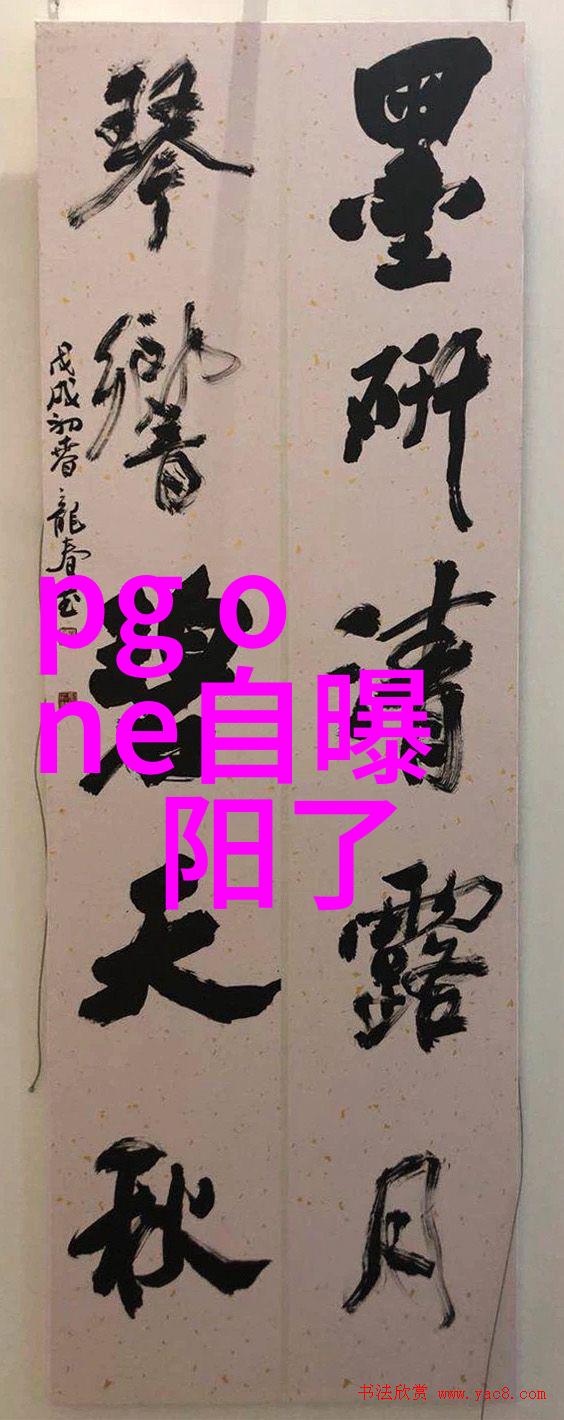 墨研清露月
琴響碧天秋
戊戌初春龍春書
pg o
ne自曝
阳了
书法欣赏 www.yac8.com